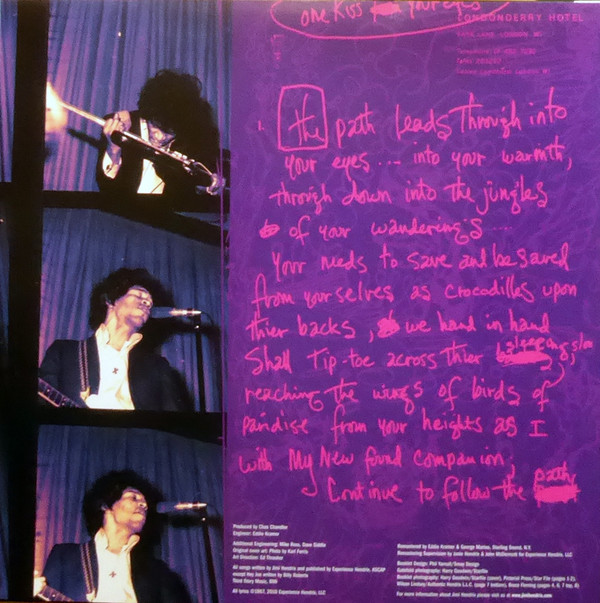 one Kiss your eyes
LONDONDERRY HOTEL
PARK LANE, LONDON, W1
1. the path leads through into
your eyes.... into your warmth,
through down into the jungles
of your wandering's ....
Your needs to save and be saved
from your selves as crocodilles upon
thier backs, we hand in hand
Shall tip-toe across thier sleeping
reaching the wings of birds of
paridise from your heights as I
with My New found companion,
Continue to follow the path
Produced by Chas Chandler
Engineer: Eddie Kramer
Additional Engineering: Mike Ross, Dave Siddle
Original cover art: Photo by Karl Ferris
Art Direction: Ed Thrasher
All songs written by Jimi Hendrix and published by Experience Hendrix, ASCAP
except Hey Joe written by Billy Roberts
Third Story Music, BMI
All lyrics ©1967, Experience Hendrix, LLC.
Remastered by Eddie Kramer & George Marino, Sterling Sound, N.Y.
Remastering Supervision by Janie Hendrix & John McDermott for Experience Hendrix, LLC
Booklet Design: Phil Yarnall/Smay Design
Gatefold photography: Harry Goodwin/Starfile
Booklet photography: Harry Goodwin/Starfile (cover), Pictorial Press/Star File (pages 1-2),
For more information about Jimi Hendrix please visit us at www.jimihendrix.com